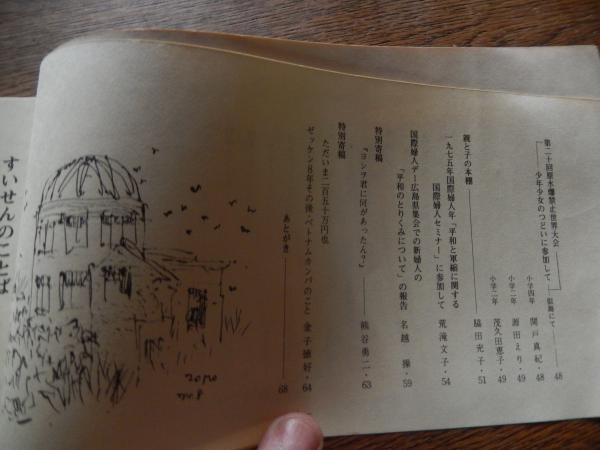 第二十回原水爆禁止世界大会
――少年少女のつどいに参加して――似島にて――48
小学四年 関戸真紀・48
小学二年 源田えり・49
小学二年 茂久田恵子・49
親と子の本棚 脇田充子・51
一九七五年国際婦人年「平和と軍縮に関する
国際婦人セミナー」に参加して 荒滝文子・54
国際婦人デー広島県集会での新婦人の
「平和のとりくみについて」の報告 名越操・59
特別寄稿
「ヨシヲ君に何があったん?」 熊谷勇二・63
特別寄稿
ただいま二百五十万円也
ゼッケン8年その後・ベトナムカンパのこと 金子徳好・64
あとがき 68
すいせんのことば